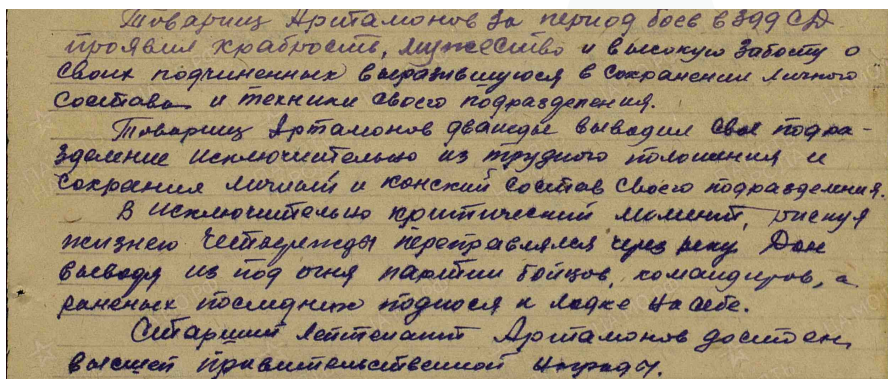 Товарищ Артамонов за период боев в 399 СД
проявил храбрость, мужество и высокую заботу о
своих подчиненных выразившуюся в сохранении личного
состава и техники своего подразделения.
Товарищ Артамонов дважды выводил свое подра-
зделение исключительно из трудного положения и
сохранил личный и конский состав своего подразделения.
В исключительно критический момент, рискуя
жизнею четвережды переправлялся через реку Дон
выводя из под огня партии бойцов, командиров, а
раненых последних поднося к лодке на себе.
Старший лейтенант Артамонов достоен
высшей правительственной награды.